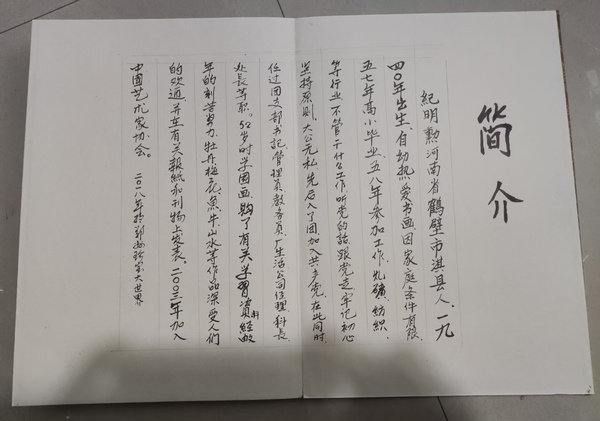 简介
纪明勲河南省鹤壁市淇县人、一九
四〇年出生、自幼热爱书画、因家庭条件有限、
五七年高小毕业、五八年参加工作、先矿、纺织、
等行业不管干什么工作、听党的話、跟党走、牢记初心
坚持原则、大公无私先后入了团加入共产党、在此同时、
任过团支部书记管理員教务員、厂生活公司经理、科長
处長等职、52岁时学国画购了有关学習資料经数
年的刻苦努力、牡丹梅花、魚、牛、山水等作品深受人们
的欢迎、并在有关報紙和刊物上发表。二〇〇三年加入
中国艺术家协会。
二〇一八年於郑州
大世界